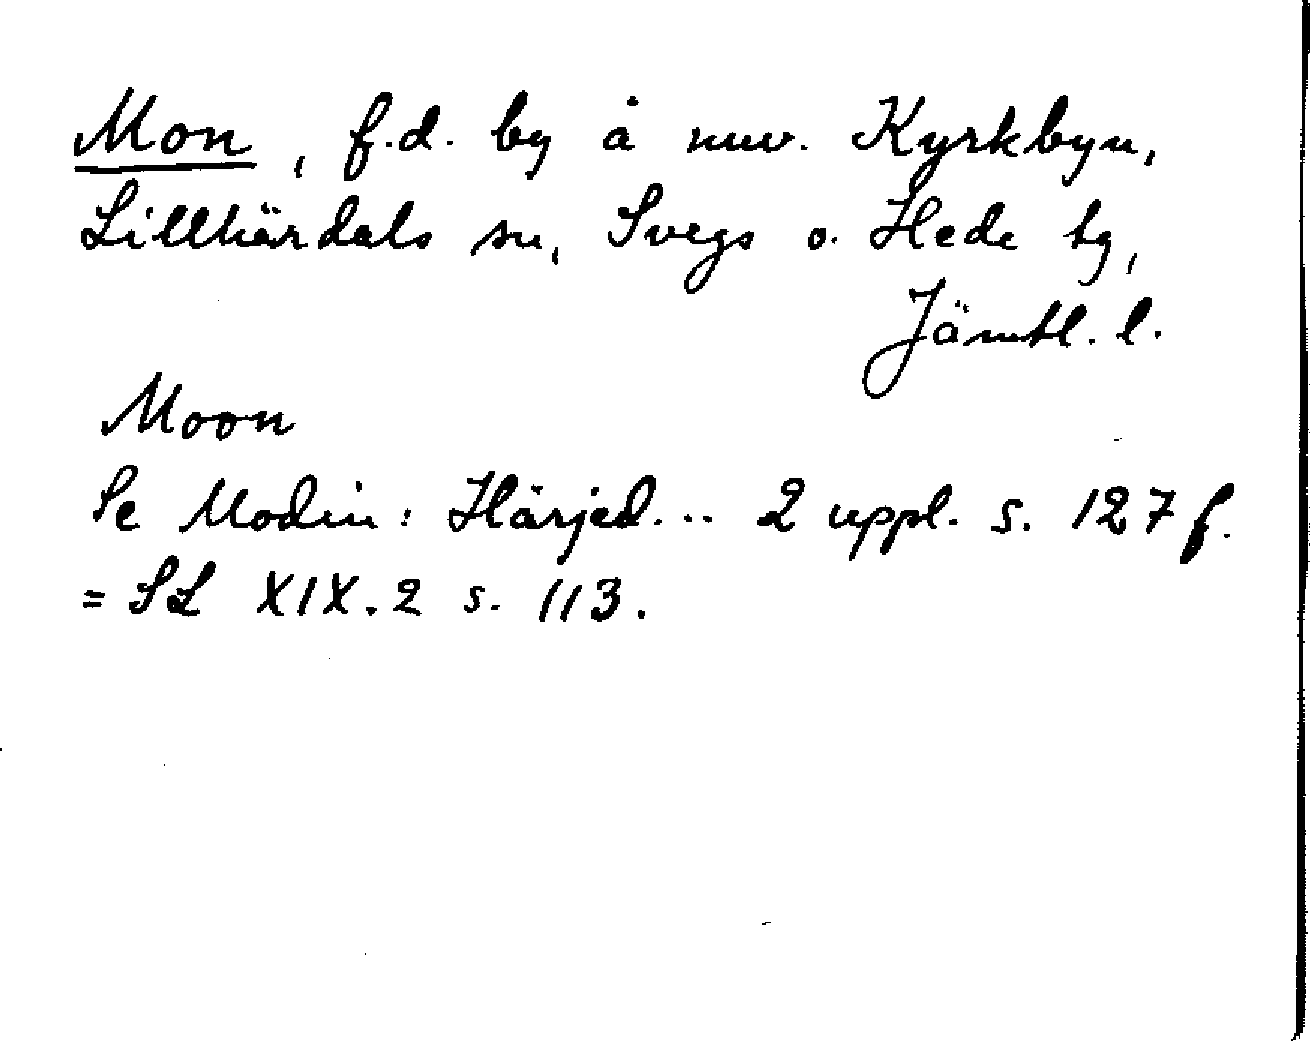 Mon, f.d. by å nuv. Kyrkbyn,
Lillhärdals sn, Svegs o. Hede tg,
Jämtl. l.
Moon
Se Modin: Härjed... 2 uppl. s. 127 f.
= SL XIX.2 s. 113.